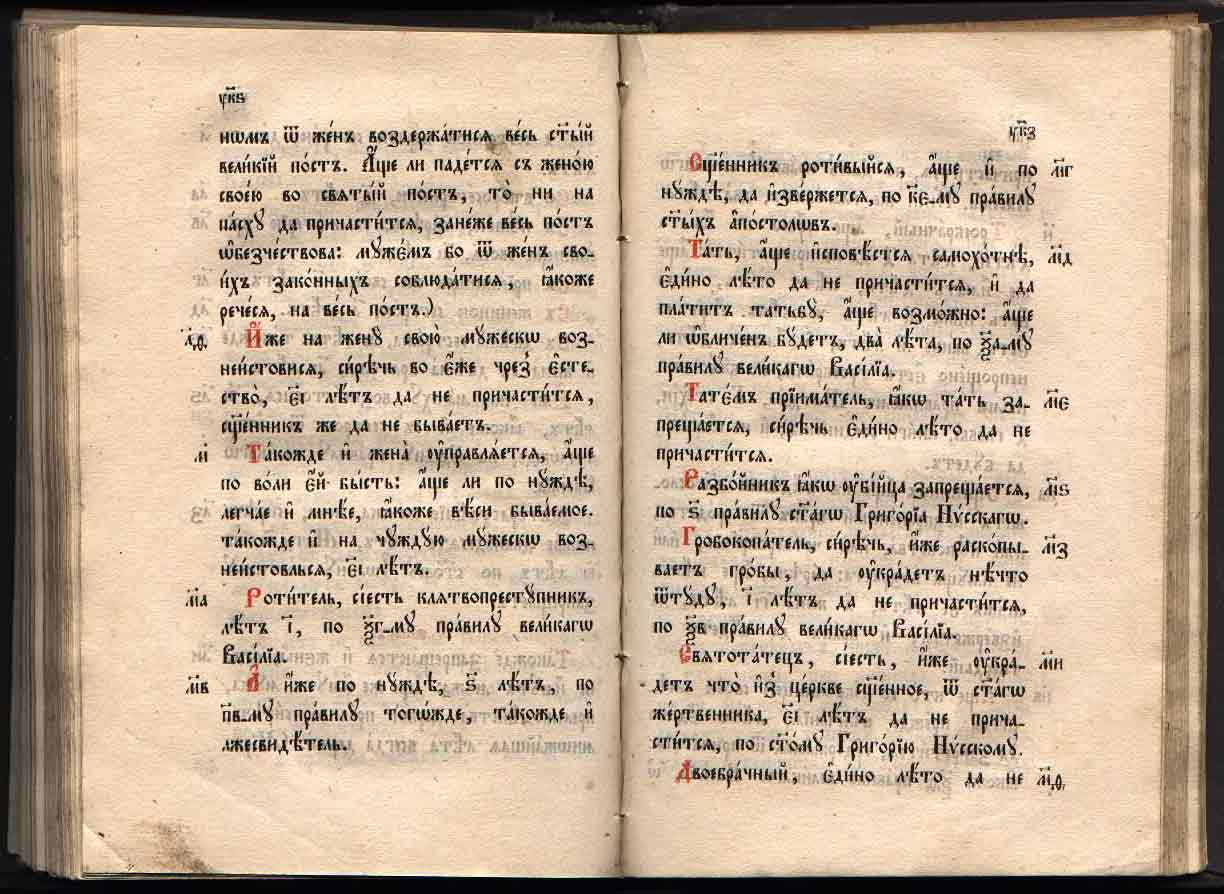 ук҃ѕ
нѡмъ ѿ же́нъ воздержа́тисѧ ве́сь ст҃ы́й
вели́кїй по́стъ. А҆́ще ли паде́тсѧ съ жено́ю
свое́ю во свѧты́й по́стъ, то̀ ни на
па́сху да причасти́тсѧ, зане́же ве́сь по́стъ
ѡ҆безче́ствова: муже́мъ бо ѿ же́нъ сво-
и́хъ зако́нныхъ соблюда́тисѧ, ꙗ҆́коже
рече́сѧ, на ве́сь по́стъ.)
л҃ѳ И҆́же на жену̀ свою̀ му́жескѡ воз-
неи́стовисѧ, си́рѣчь во є҆́же чрез̾ є҆сте-
ство̀, є҃і лѣ́тъ да не причасти́тсѧ,
сщ҃е́нникъ же да не быва́етъ.
м҃ Та́кожде и҆ жена̀ ᲂу҆правлѧ́етсѧ, а҆́ще
по во́ли є҆́й бы́сть: а҆́ще ли по ну́ждѣ,
легча́е и҆ мнѣ́е, ꙗ҆́коже вѣ́си быва́емое.
та́кожде и҆ на чужду́ю му́жескѡ воз-
неи́стовльсѧ, є҃і лѣ́тъ.
м҃а Роти́тель, сіе́сть клѧтвопресту́пникъ,
лѣ́тъ і҃, по ѯ҃г-му пра́вилу вели́кагѡ
Васі́лїа.
м҃в А҆ и҆́же по ну́ждѣ, ѕ҃ лѣ́тъ, по
п҃в-му пра́вилу тогѡ́жде, та́кожде и҆
лжесвидѣ́тель.
ук҃з
Сщ҃е́нникъ роти́выйсѧ, а҆́ще и҆ по м҃г
ну́ждѣ, да и҆зве́ржетсѧ, по к҃е-му пра́вилу
ст҃ы́хъ а҆по́столѡвъ.
Та́ть, а҆́ще и҆сповѣ́стсѧ самохо́тнѣ, м҃д
є҆ди́но лѣ́то да не причасти́тсѧ, и҆ да
пла́титъ татьбу̀, а҆́ще возмо́жно: а҆́ще
ли ѡ҆бличе́нъ бу́детъ, два̀ лѣ̑та, по ѯ҃а-му
пра́вилу вели́кагѡ Васі́лїа.
Тате́мъ прїима́тель, ꙗ҆́кѡ та́ть за- м҃е
преща́етсѧ, си́рѣчь є҆ди́но лѣ́то да не
причасти́тсѧ.
Разбо́йникъ ꙗ҆́кѡ ᲂу҆бі́йца запреща́етсѧ, м҃ѕ
по ѕ҃ пра́вилу ст҃а́гѡ Григо́рїа Нѵ́сскагѡ.
Гробокопа́тель, си́рѣчь, и҆́же раскопы- м҃з
ва́етъ гро́бы, да ᲂу҆кра́детъ нѣ́что
ѿту́ду, і҃ лѣ́тъ да не причасти́тсѧ,
по ѯ҃в пра́вилу вели́кагѡ Васі́лїа.
Свѧтота́тецъ, сіе́сть, и҆́же ᲂу҆кра́- м҃и
детъ что̀ и҆з̾ це́ркве сщ҃е́нное, ѿ ст҃а́гѡ
же́ртвенника, є҃і лѣ́тъ да не прича-
сти́тсѧ, по ст҃о́му Григо́рїю Нѵ́сскому.
Двоебра́чный, є҆ди́но лѣ́то да не м҃ѳ